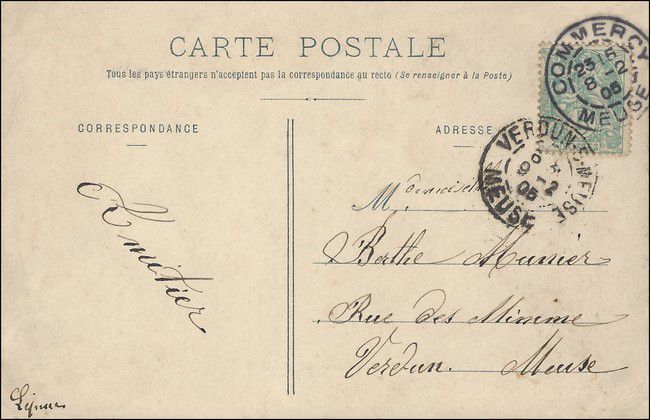 CARTE POSTALE
Tous les pays étrangers n'acceptent pas la correspondance au recto (Se renseigner à la Poste)
CORRESPONDANCE
ADRESSE
COMMERCY
MEUSE
VERDUN-S-MEUSE
MEUSE
Mademoiselle
Berthe Munier
Rue des Minimme
Verdun. Meuse